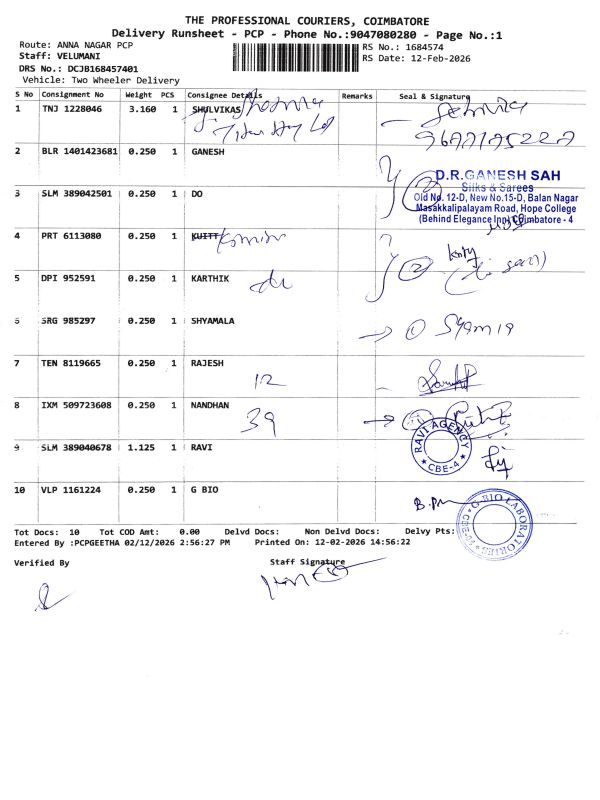 THE PROFESSIONAL COURIERS, COIMBATORE
Delivery Runsheet - PCP - Phone No.:9047080280 - Page No.:1
Route: ANNA NAGAR PCP
Staff: VELUMANI
DRS No.: DCJB168457401
Vehicle: Two Wheeler Delivery
RS No.: 1684574
RS Date: 12-Feb-2026
S No Consignment No Weight PCS Consignee Details Remarks Seal & Signature
1 TNJ 1228046 3.160 1 SHULVIKAS
2 BLR 1401423681 0.250 1 GANESH
D.R.GANESH SAH
Silks & Sarees
Old No. 12-D, New No.15-D, Balan Nagar
Masakkalipalayam Road, Hope College
(Behind Elegance Inn) Coimbatore - 4
3 SLM 389042501 0.250 1 DO
4 PRT 6113080 0.250 1
5 DPI 952591 0.250 1 KARTHIK
2
6 SRG 985297 0.250 1 SHYAMALA
1
7 TEN 8119665 0.250 1 RAJESH
12
8 IXM 509723608 0.250 1 NANDHAN
39
RAVI AGENCY
CBE-4
9 SLM 389040678 1.125 1 RAVI
10 VLP 1161224 0.250 1 G BIO
G BIO LABORATORIES
Tot Docs: 10 Tot COD Amt: 0.00 Delvd Docs: Non Delvd Docs: Delvy Pts:
Entered By :PCPGEETHA 02/12/2026 2:56:27 PM Printed On: 12-02-2026 14:56:22
Verified By Staff Signature